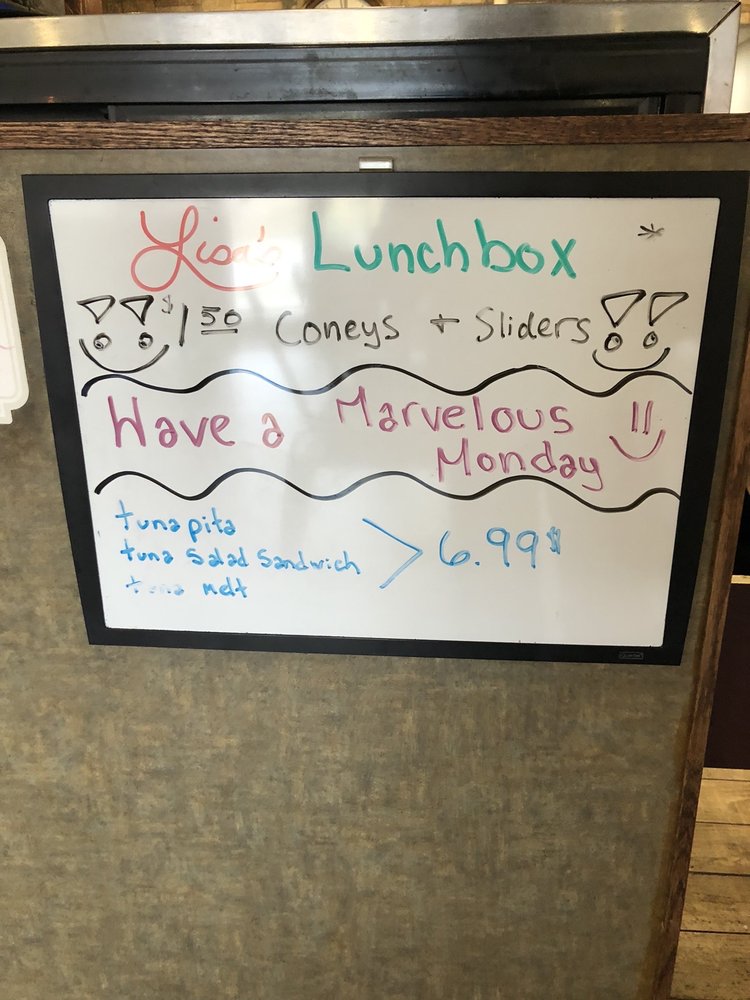 Lisa's Lunchbox *
$1 50 Coneys + Sliders
Have a Marvelous
Monday
tuna pita
tuna salad sandwich > 6.99$
tuna melt